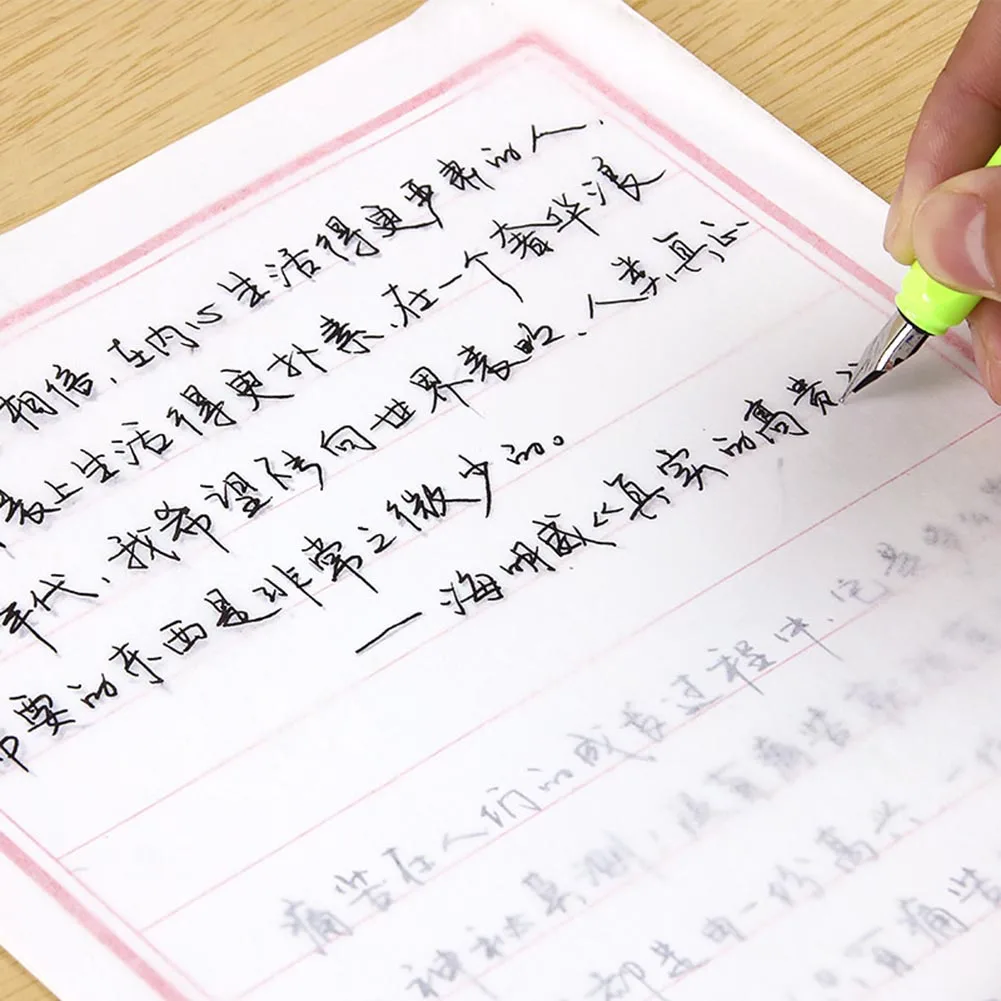 相信，在内心生活得更严肃的人，
表上生活得更朴素，在一个奢华浪
年代，我希望能向世界表明，人类真正
要的东西是非常之微少的。
—海明威《真实的高贵》
痛苦在人们的成长过程中，它是
神秘莫测，没有痛苦就
都是由一份高兴，一份
痛苦